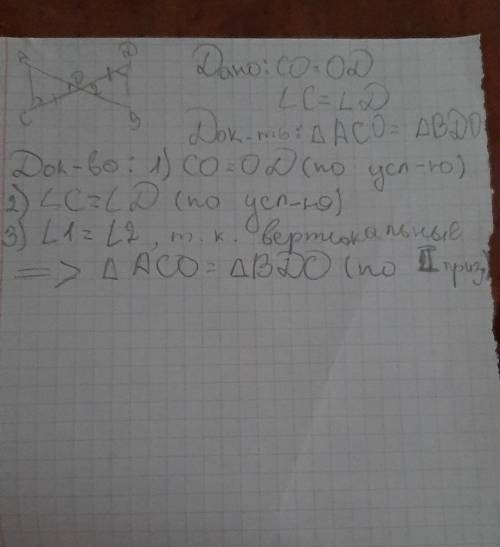 A D
1 O 2
C B
Дано: CO=OD
∠C=∠D
Док-ть: △ACO=△BDO
Док-во: 1) CO=OD (по усл-ю)
2) ∠C=∠D (по усл-ю)
3) ∠1=∠2, т.к. вертикальные
=> △ACO=△BDO (по II приз)